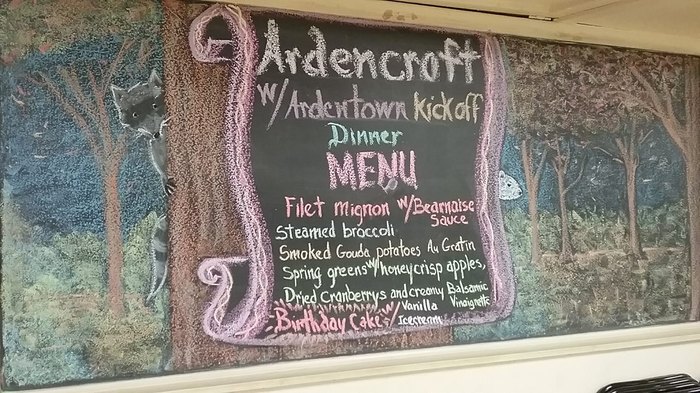 Ardencroft
w/Ardentown Kick off
Dinner
MENU
Filet mignon w/Bearnaise
Sauce
Steamed broccoli
Smoked Gouda potatoes Au Gratin
Spring greens w/honeycrisp apples,
Dried Cranberrys and creamy Balsamic
Vinaigrette
Birthday Cake w/ Vanilla
Icecream